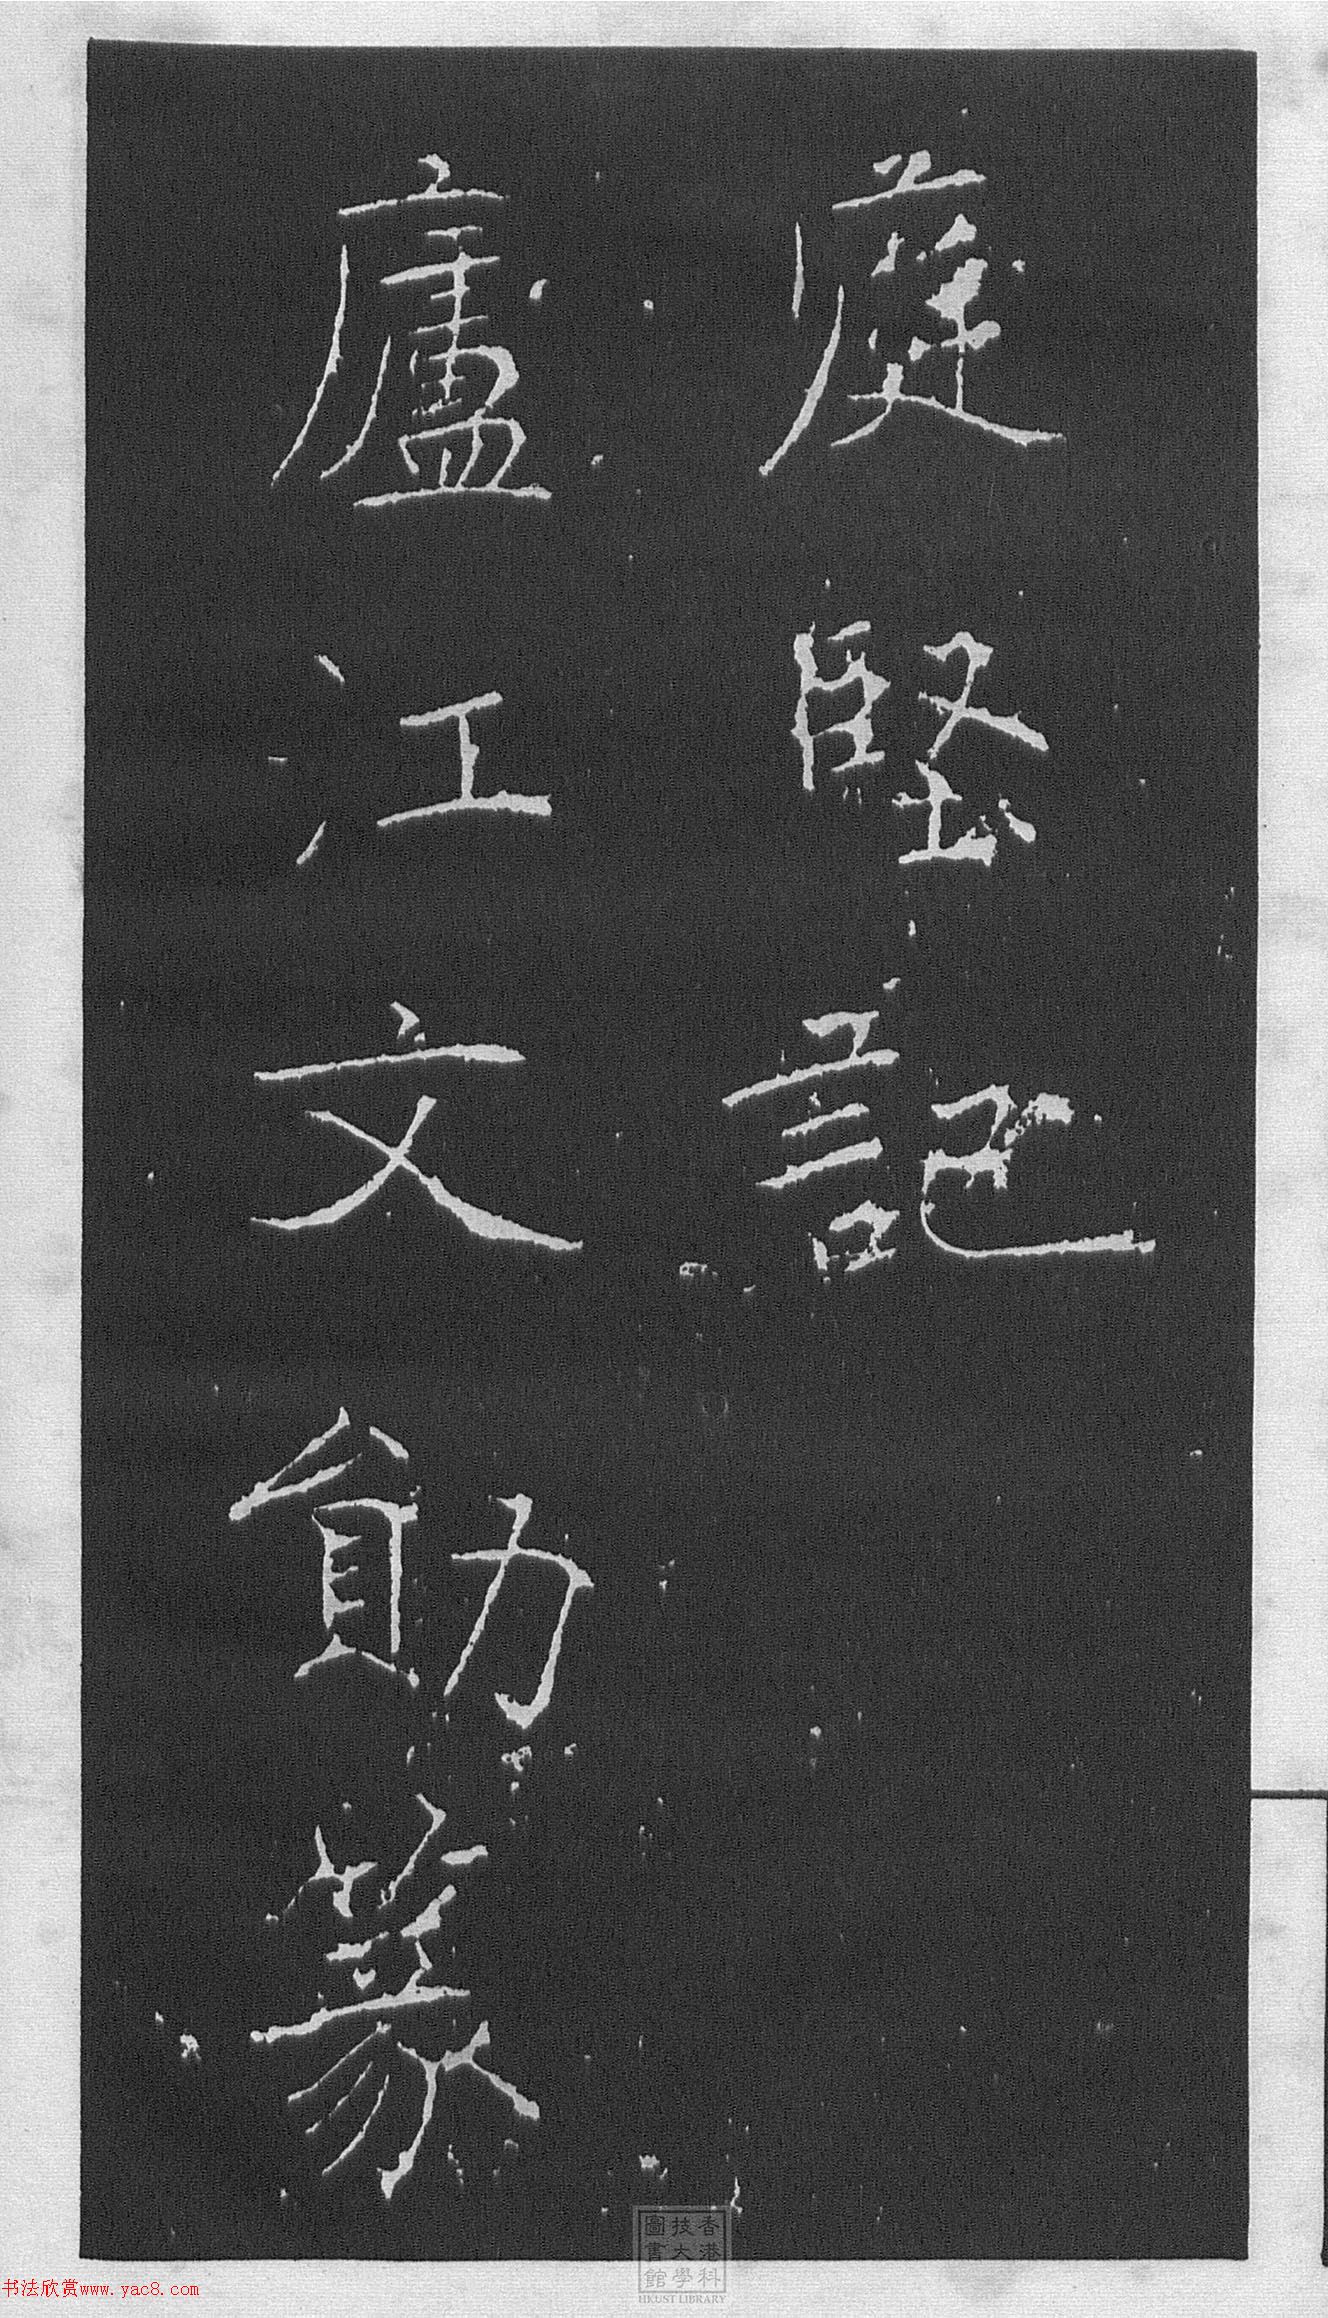 庭堅記
廬江文勛篆
香港科
技大學
圖書館
HKUST LIBRARY
书法欣赏www.yac8.com